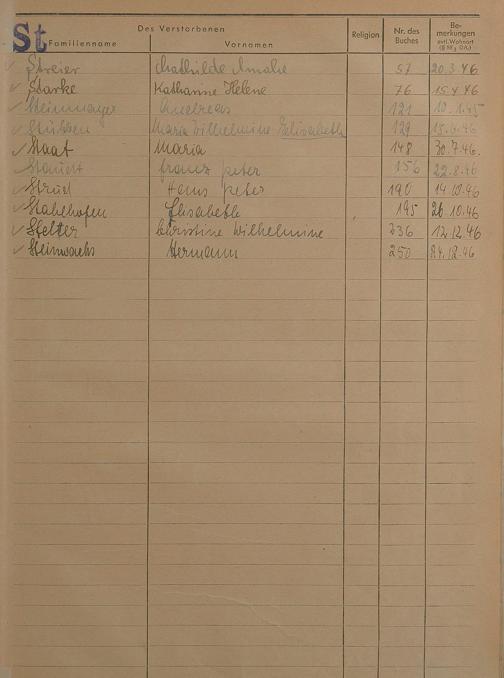 St
Des Verstorbenen
Familienname Vornamen Religion Nr. des Buches Bemerkungen evtl. Wohnort
Streier Mathilde Amalie 57 20.3.46
Starke Katharine Helene 76 15.4.46
Steinmayer Andreas 121
Stübben Maria Wilhelmine Elisabeth 129 15.6.46
Staat Maria 148 30.7.46.
Franz Peter 156 22.8.46
Strud Hans Peter 190 14.10.46
Stahlhofen Elisabeth 195 26.10.46
Stelter Christine Wilhelmine 236 12.12.46
Steinwachs Hermann 250 24.12.46